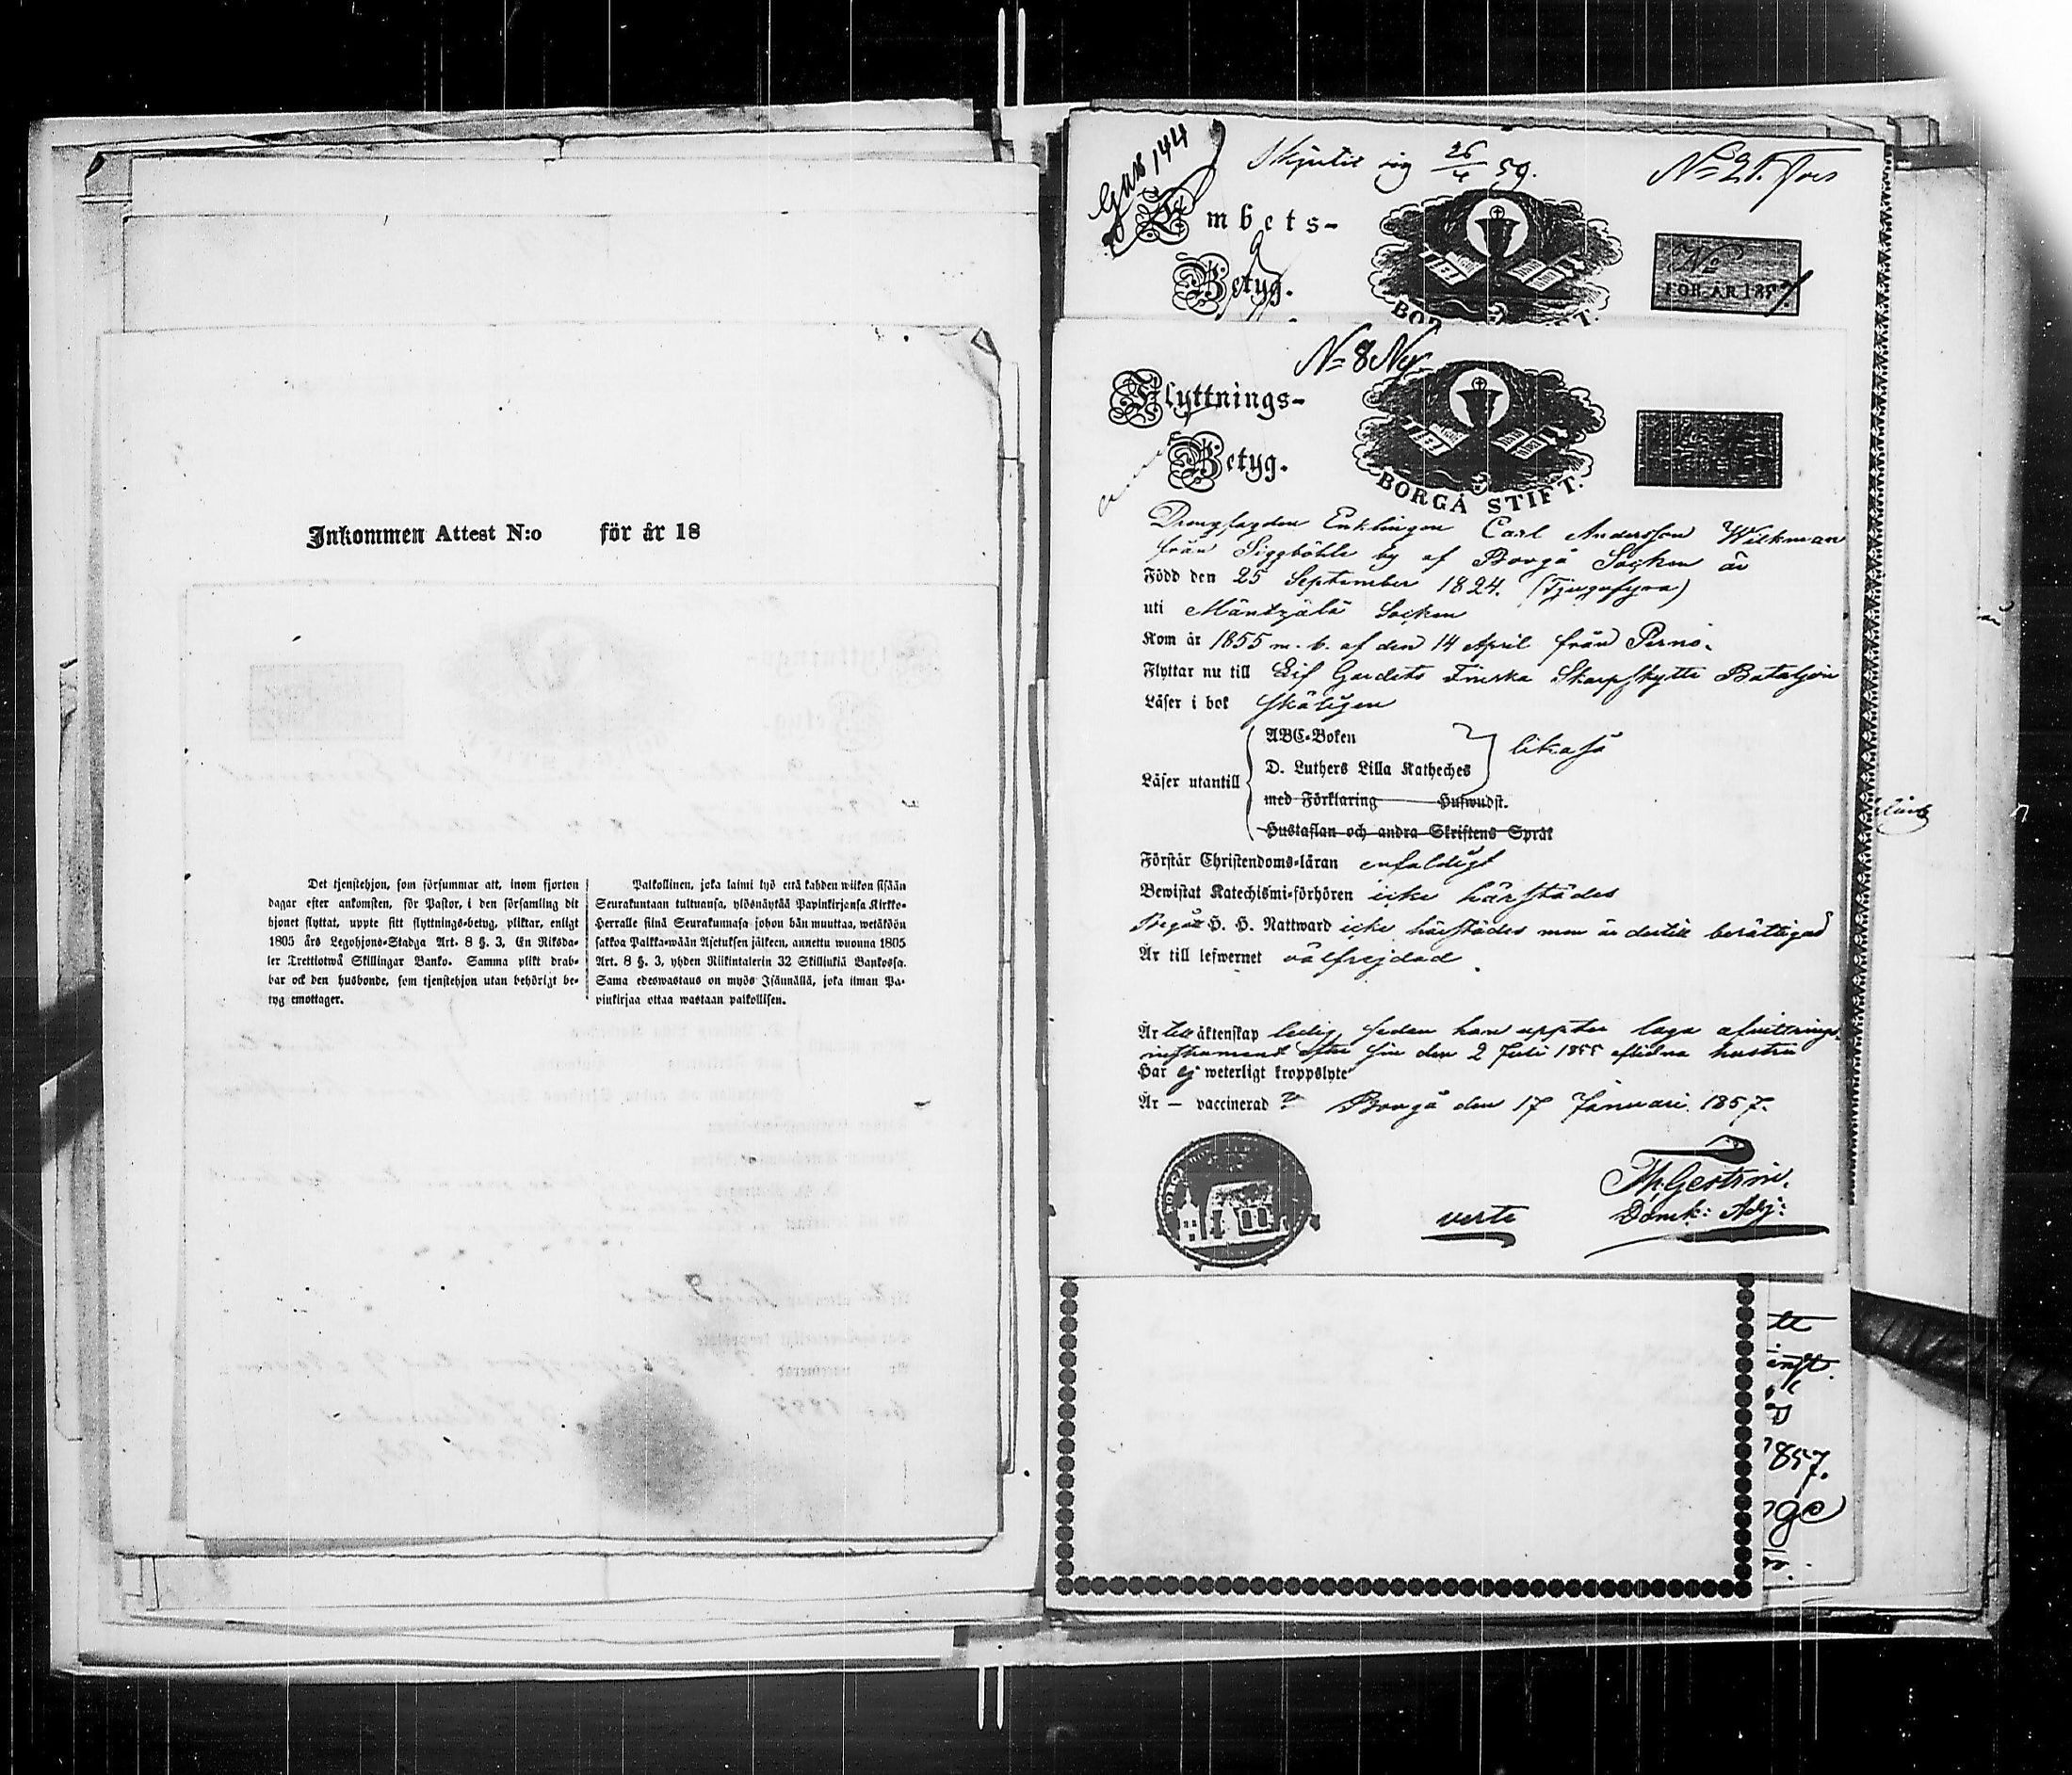 Inkommen Attest N:o för år 18
Det tjenstehjon, som försummar att, inom fjorton
dagar efter ankomsten, för Pastor, i den församling dit
hjonet flyttat, uppte sitt flyttnings-betyg, pliktar, enligt
1805 års Legohjons-Stadga Art. 8 §. 3, En Riksda-
ler Trettiotwå Skillingar Banko. Samma plikt drab-
bar ock den husbonde, som tjenstehjon utan behörigt be-
tyg emottager.
Palkollinen, joka laimi lyö että kahden wiikon sisään
Seurakuntaan tultuansa, ylösnäytää Papinkirjansa Kirkko-
Herralle siinä Seurakunnasa johon hän muuttaa, wetäköön
sakkoa Palkka-wään Asetuksen jälkeen, annettu wuonna 1805
Art. 8 §. 3, yhden Riikintalerin 32 Skillinkiä Bankossa.
Sama edeswastaus on myös Isännällä, joka ilman Pa-
pinkirjaa ottaa wastaan palkollisen.
Skjutit sig 26/4 59.
Embets-
Betyg.
No
FÖR ÅR 1857
No 8 Ny
Flyttnings-
Betyg.
BORGÅ STIFT.
Drengfogden Enklingen Carl Andersson Wickman
från Siggböhle by af Borgå Socken är
Född den 25 September 1824. (Tjugufyra)
uti Mäntzälä Socken
Kom år 1855 m. b. af den 14 April från Perno.
Flyttar nu till Lif Gardets Finska Skarpskytte Bataljon
Läser i bok skäligen
Läser utantill
ABC-Boken
D. Luthers Lilla Katheches
likaså
med Förklaring Hufwudst.
Hustaflan och andra Skriftens Språk
Förstår Christendoms-läran enfaldigt
Bewistat Katechismi-förhören icke härstädes
Begått H. H. Nattward icke härstädes men är dertill berättigad
Är till lefwernet välfrejdad
Är till äktenskap ledig, sedan han uppter laga afvittrings-
instrument efter sin den 2 Juli 1855 aflidna hustru
Har ej weterligt kroppslyte
Är – vaccinerad Borgå den 17 Januari 1857.
Gestrin.
Domk: Adj:
verte
1857.